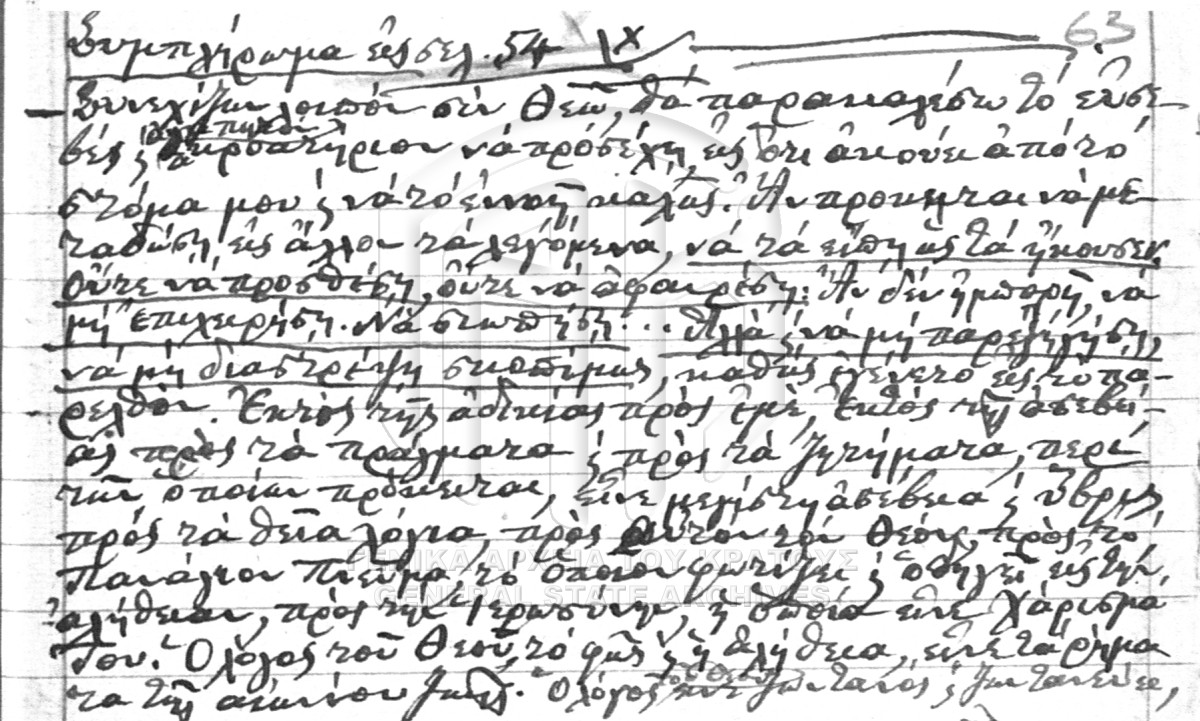 Συμπλήρωμα εἰς σελ. 54 63
Συνεχίζων λοιπὸν σὺν Θεῷ, θὰ παρακαλέσω τὸ εὐσε-
βὲς ς ἀκροατήριον νὰ προσέχῃ εἰς ὅτι ἀκούει ἀπὸ τὸ
στόμα μου ς νὰ τὸ ἐννοῇ καλῶς. Ἂν πρόκηται νὰ με-
ταδώσῃ εἰς ἄλλον τὰ λεγόμενα, νὰ τὰ εἴπῃ ὡς τὰ ἤκουσεν,
οὔτε νὰ προσθέσῃ, οὔτε νὰ ἀφαιρέσῃ. Ἂν δὲν ἠμπορῇ, νὰ
μὴ ἐπιχειρήσῃ. Νὰ σιωπήσῃ... Ἀλλὰ ς νὰ μὴ παρεξηγήσῃ,
νὰ μὴ διαστρέψῃ σκοπίμως, καθὼς ἐλέγετο εἰς τὸ πα-
ρελθόν. Ἐκτὸς τῆς ἀδικίας πρὸς ἐμέ, ἐκτὸς τῆς ἀσεβεί-
ας πρὸς τὰ πράγματα ς πρὸς τὰ ζητήματα, περὶ
τῶν ὁποίων πρόκειται, εἶνε μεγίστη ἀσέβεια ς ὕβρις
πρὸς τὰ θεῖα λόγια, πρὸς αὐτὸν τὸν Θεόν, πρὸς τὸ
Πανάγιον Πνεῦμα, τὸ ὁποῖον φωτίζει ς ὁδηγεῖ εἰς τὴν
ἀλήθειαν, πρὸς τὴν Ἱερωσύνην, ἡ ὁποία εἶνε Χάρισμα
Του. Ὁ λόγος τοῦ Θεοῦ, τὸ φῶς ς ἡ ἀλήθεια, εἶνε τὰ ῥήμα
τα τῆς αἰωνίου ζωῆς. Ὁ λόγος τοῦ Θεοῦ εἶνε ζωντανός ς ζωντανεύει,
ΓΕΝΙΚΑ ΑΡΧΕΙΑ ΤΟΥ ΚΡΑΤΟΥΣ
GENERAL STATE ARCHIVES